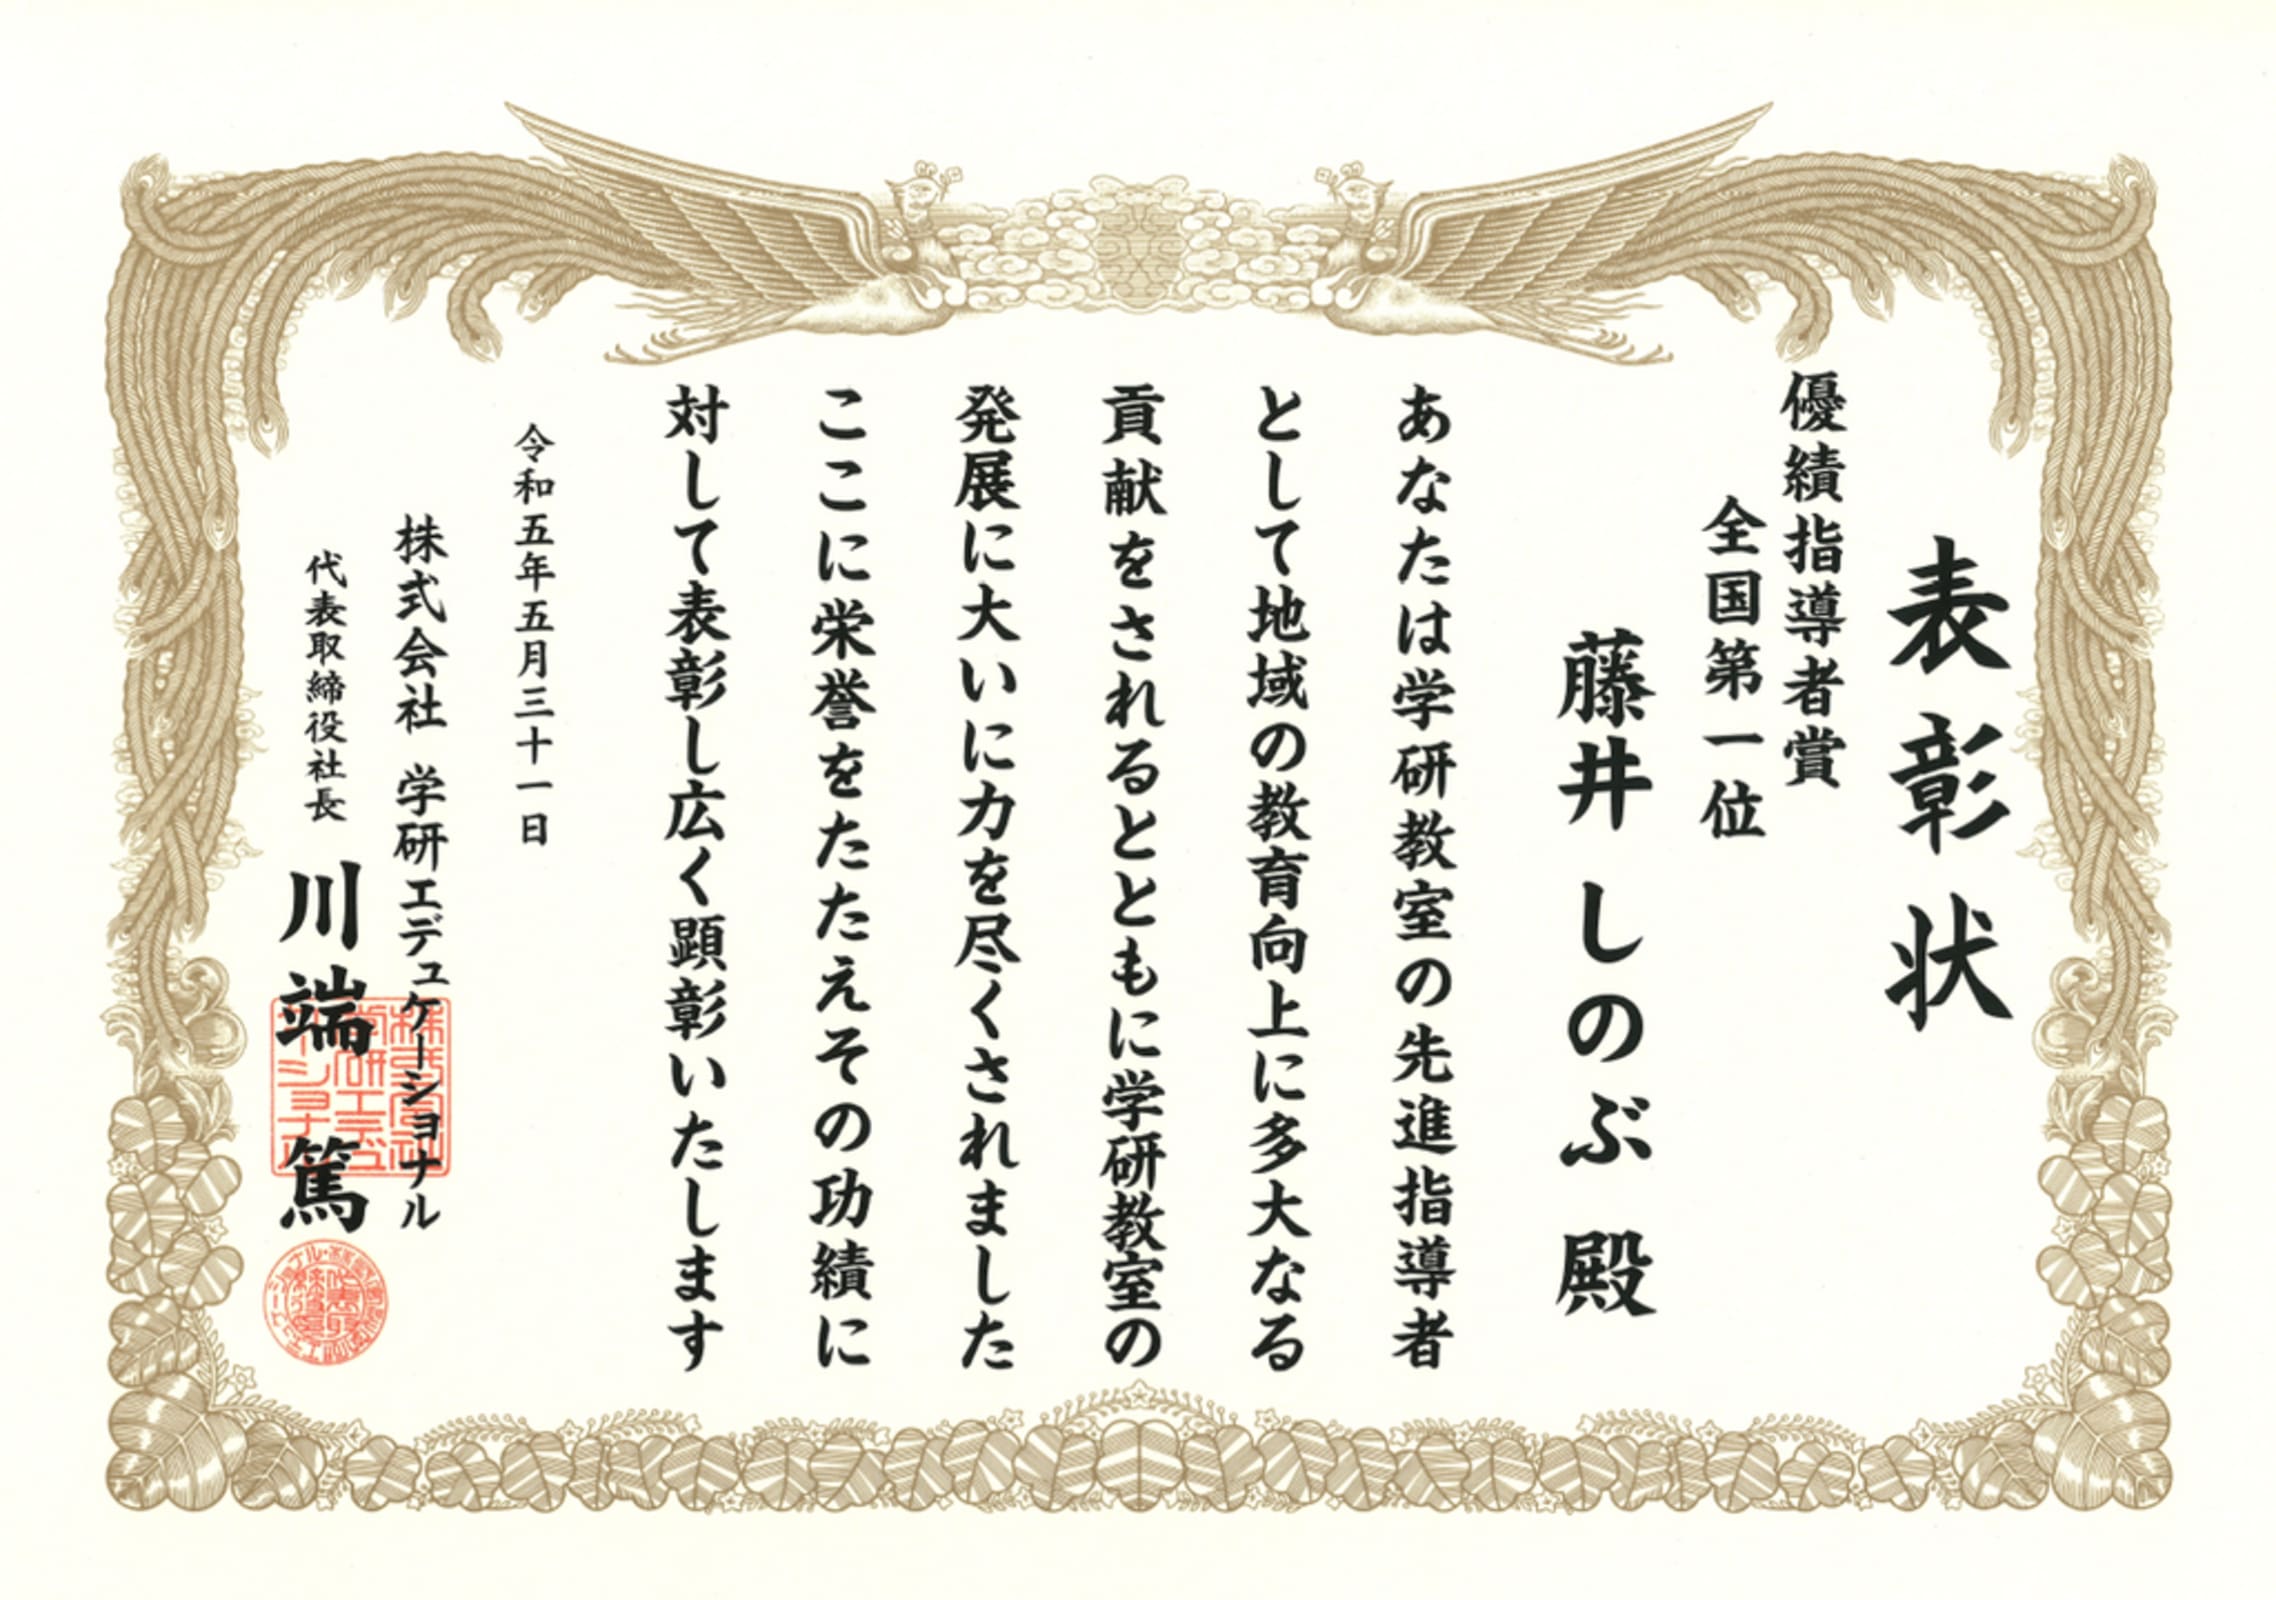 表彰状
優績指導者賞
全国第一位
藤井しのぶ 殿
あなたは学研教室の先進指導者
として地域の教育向上に多大なる
貢献をされるとともに学研教室の
発展に大いに力を尽くされました
ここに栄誉をたたえその功績に
対して表彰し広く顕彰いたします
令和五年五月三十一日
株式会社 学研エデュケーショナル
代表取締役社長 川端 篤